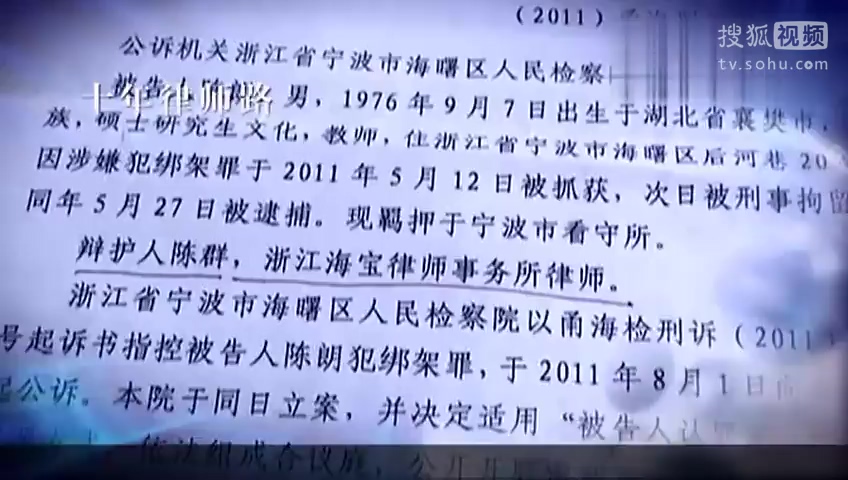 (2011)甬海刑
搜狐视频
tv.sohu.com
公诉机关浙江省宁波市海曙区人民检察
十年律师路
被告人陈朗 男,1976年9月7日出生于湖北省襄樊市,
族,硕士研究生文化,教师,住浙江省宁波市海曙区后河巷20
因涉嫌犯绑架罪于2011年5月12日被抓获,次日被刑事拘留
同年5月27日被逮捕。现羁押于宁波市看守所。
辩护人陈群,浙江海宝律师事务所律师。
浙江省宁波市海曙区人民检察院以甬海检刑诉(2011)
号起诉书指控被告人陈朗犯绑架罪,于2011年8月1日向
起公诉。本院于同日立案,并决定适用“被告人认
依法组成合议庭,公开开